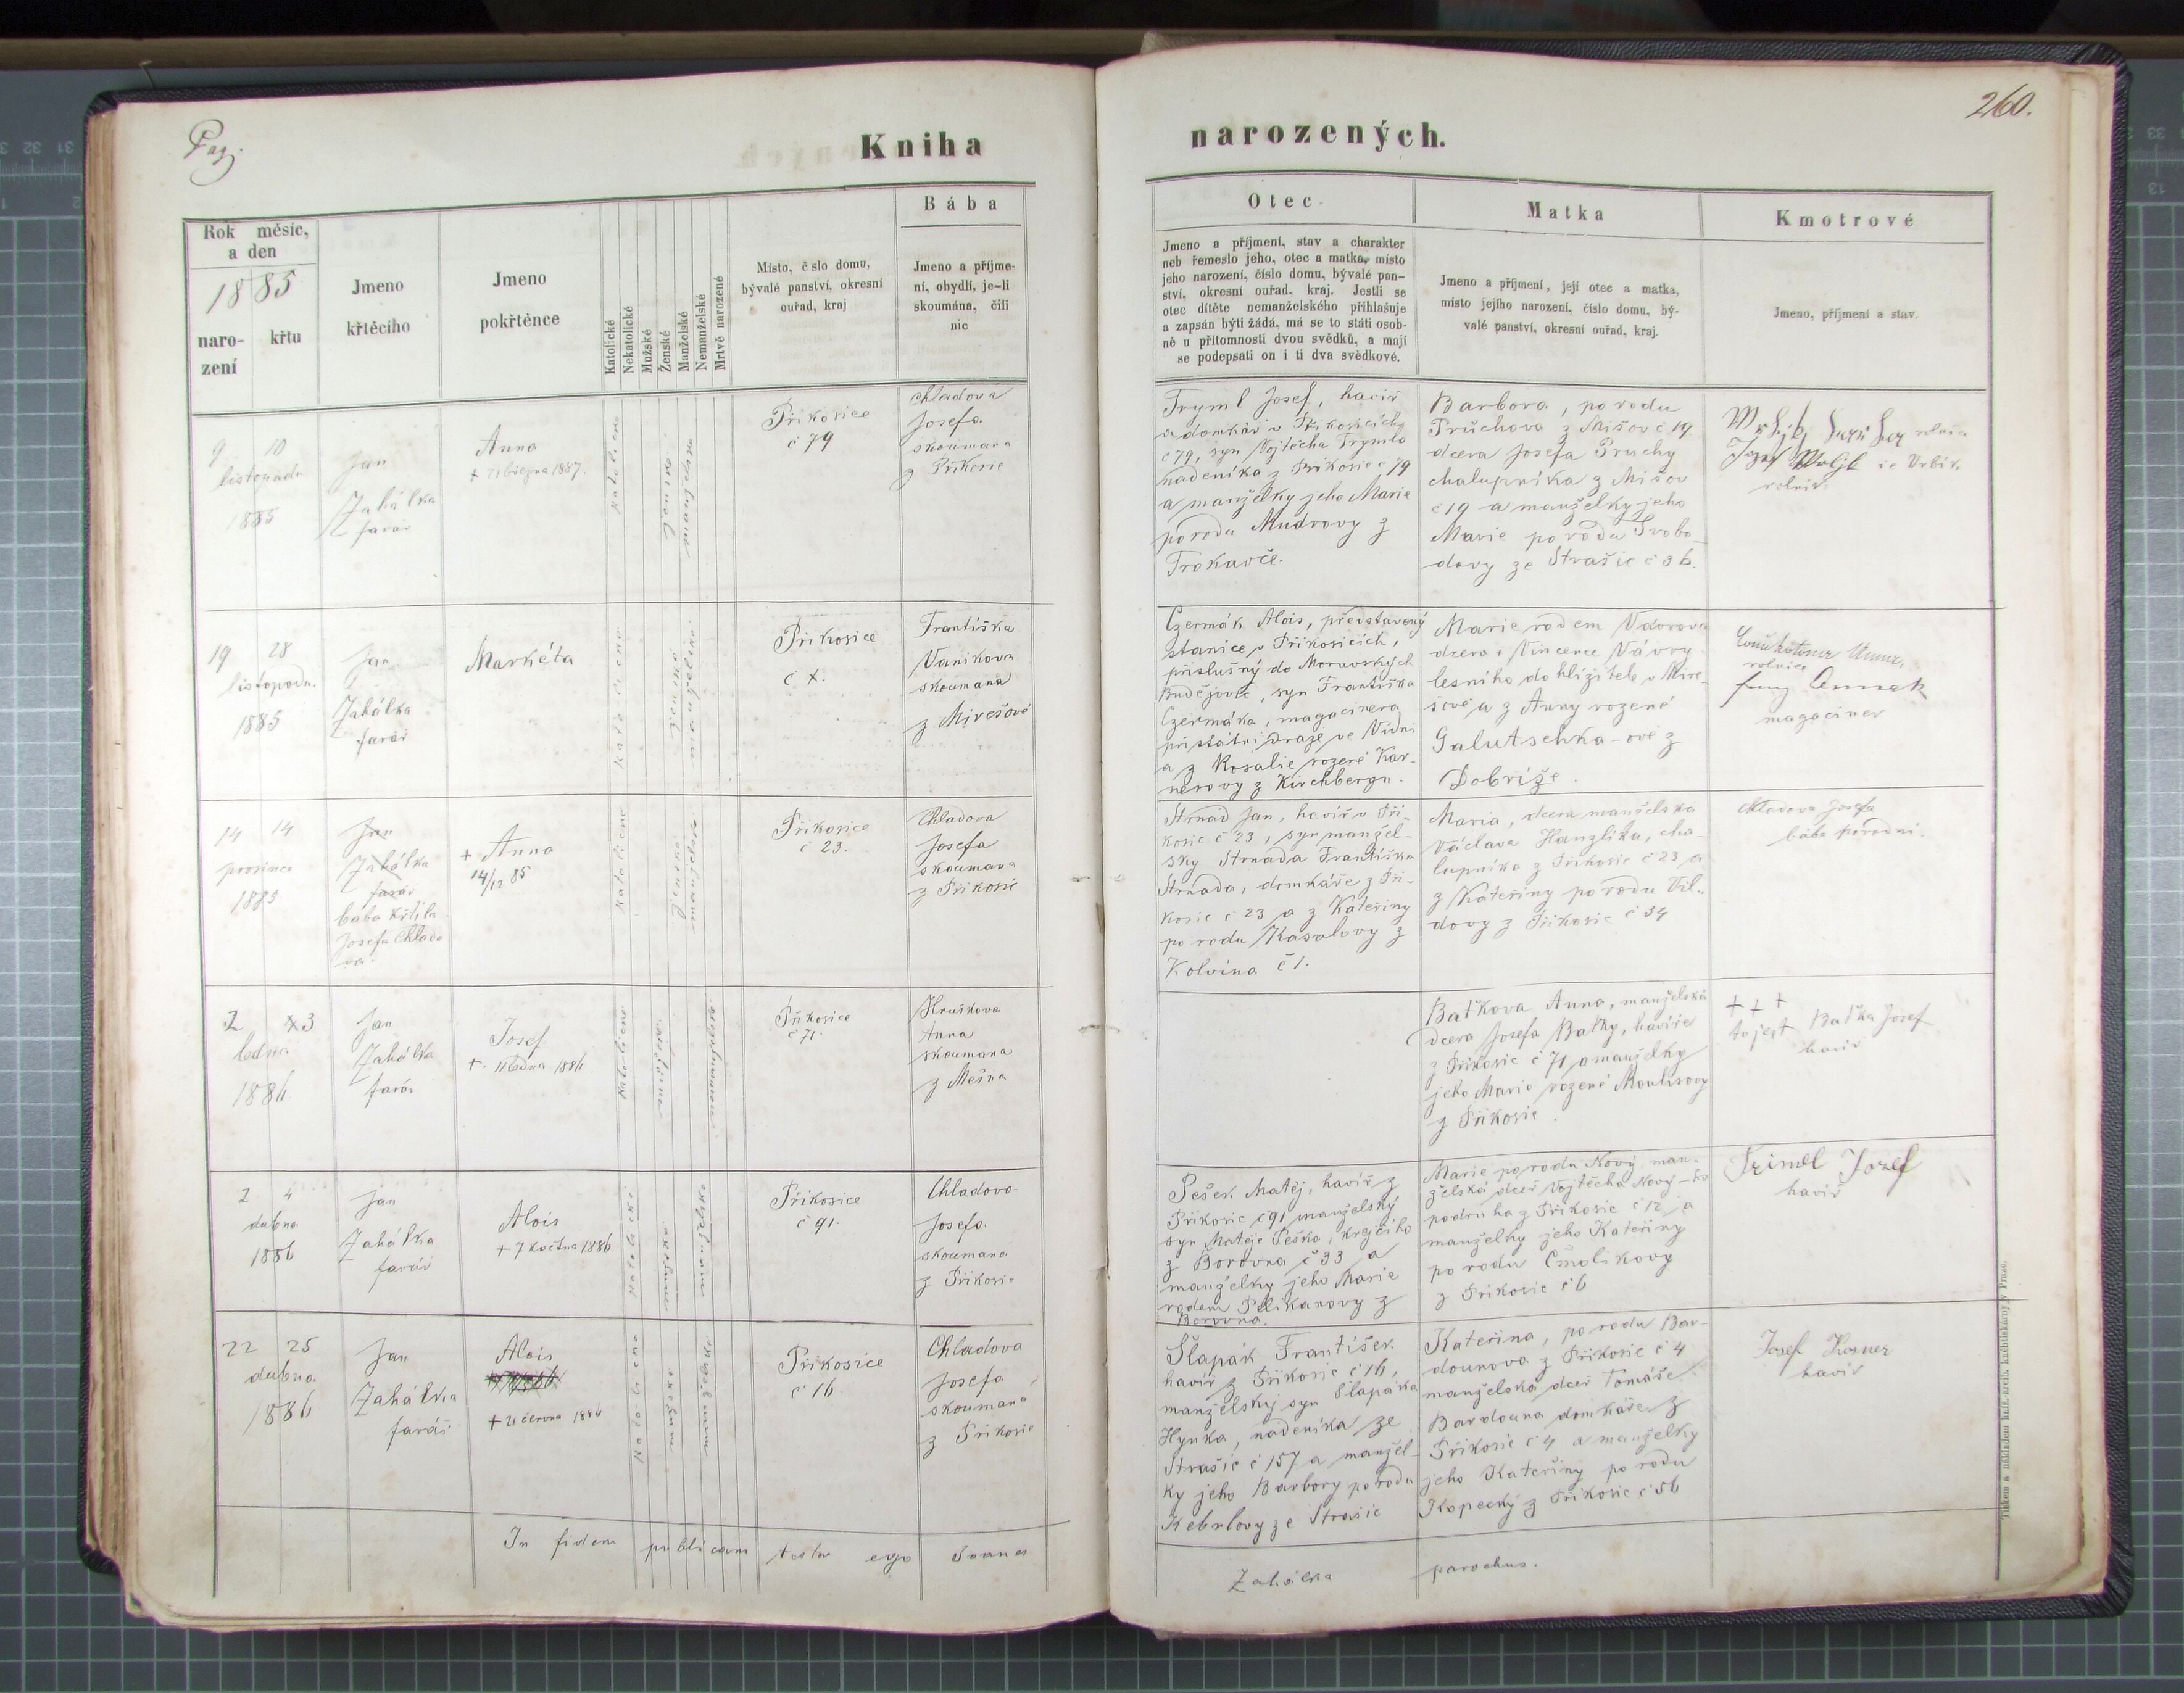 Pag.
260.
Kniha
narozených.
Rok měsíc,
a den
1885
naro-
zení
křtu
Jmeno
křtěcího
Jmeno
pokřtěnce
Katolické
Nekatolické
Mužské
Ženské
Manželské
Nemanželské
Mrtvě narozené
Místo, číslo domu,
bývalé panství, okresní
ouřad, kraj
Bába
Jmeno a příjme-
ní, obydlí, je-li
skoumána, čili
nic
Otec
Jmeno a příjmení, stav a charakter
neb řemeslo jeho, otec a matka, místo
jeho narození, číslo domu, bývalé pan-
ství, okresní ouřad, kraj. Jestli se
otec dítěte nemanželského přihlašuje
a zapsán býti žádá, má se to státi osob-
ně u přítomnosti dvou svědků, a mají
se podepsati on i ti dva svědkové.
Matka
Jmeno a příjmení, její otec a matka,
místo jejího narození, číslo domu, bý-
valé panství, okresní ouřad, kraj.
Kmotrové
Jmeno, příjmení a stav.
9 10
listopadu
1885
Jan
Zahálka
farar
Anna
+ 21 března 1887.
Příkosice
č 79
Chladová
Josefa
skoumana
z Příkosic
Tryml Josef, havíř
a domkář v Příkosicích
č 79, syn Vojtěcha Trymla
nadeníka z Příkosic č 79
a manželky jeho Marie
porodu Mudrovy z
Trokavče.
Barbora, po rodu
Průchova z Mišov č 19.
dcera Josefa Průchy
chalupníka z Mišov
č 19 a manželky jeho
Marie po rodu Svobo-
dovy ze Strašic č 36.
rolník
19 28
listopadu.
1885
Jan
Zahálka
farář
Markéta
Příkosice
č X.
Františka
Vaníkova
skoumaná
z Mirešové
Czermák Alois, představený
stanice v Příkosicích,
příslušný do Moravských
Budějovic, syn Františka
Czermáka, magacinera
při státní dráze ve Vídni
a z Rosalie rozené Kar-
nerovy z Kirchbergu.
Marie rodem Vávrova
dcera + Vincence Vávry
lesního dohlížitele v Mire-
šově a z Anny rozené
Galutschka-ové z
Dobříše.
magaciner
14 14
prosince
1885
Jan
Zahálka
farář
baba křtila
Josefa Chlado
va.
+ Anna
14/12 85
Příkosice
č 23.
Chladova
Josefa
skoumana
z Příkosic
Strnad Jan, havíř v Pří-
kosic č 23, syn manžel-
ský Strnada Františka
Strnada, domkáře z Pří-
kosic č 23 a z Kateřiny
po rodu Kasalovy z
Kolvína č 1.
Maria, dcera manželska
Václava Hanzlíka, cha-
lupníka z Příkosic č 23 a
z Kateřiny po rodu Vil-
dovy z Příkosic č 34
Chladova Josefa
bába porodní.
2 3
ledna
1886
Jan
Zahálka
farář
Josef
+ 11 ledna 1886
Příkosice
č 71.
Hruškova
Anna
skoumana
z Mešna
Baťkova Anna, manželská
dcera Josefa Baťky, havíře
z Příkosic č 71 a manželky
jeho Marie rozené Moulisovy
z Příkosic.
+ + +
to jest Baťka Josef
havíř
2 4
dubna
1886
Jan
Zahálka
farář
Alois
+ 7 května 1886.
Příkosice
č 91.
Chladova
Josefa
skoumana
z Příkosic
Pešek Matěj, havíř z
Příkosic č 91 manželský
syn Matěje Peška, krejčího
z Borovna č 33 a
manželky jeho Marie
rodem Pelikanovy z
Borovna.
Marie po rodu Nový, man-
želská dceř Vojtěcha Nový-ho
podruha z Příkosic č 12 a
manželky jeho Kateřiny
po rodu Čmolikovy
z Příkosic č 6
Triml Jozef
havíř
22 25
dubna
1886
Jan
Zahálka
farář
Alois
+ 21 června 1886
Příkosice
č 16.
Chladova
Josefa
skoumana
z Příkosic
Šlapák František
havíř z Příkosic č 16,
manželský syn Šlapáka
Hynka, nadeníka ze
Strašic č 157 a manžel-
ky jeho Barbory po rodu
Kebrlovy ze Strašic
Kateřina, po rodu Bar-
dounova z Příkosic č 4
manželská dceř Tomáše
Bardouna domkáře z
Příkosic č 4 a manželky
jeho Kateřiny po rodu
Kopecký z Příkosic č 56
Josef Kosner
havíř
In fidem publicam testor ego Joanes
Zahálka parochus.